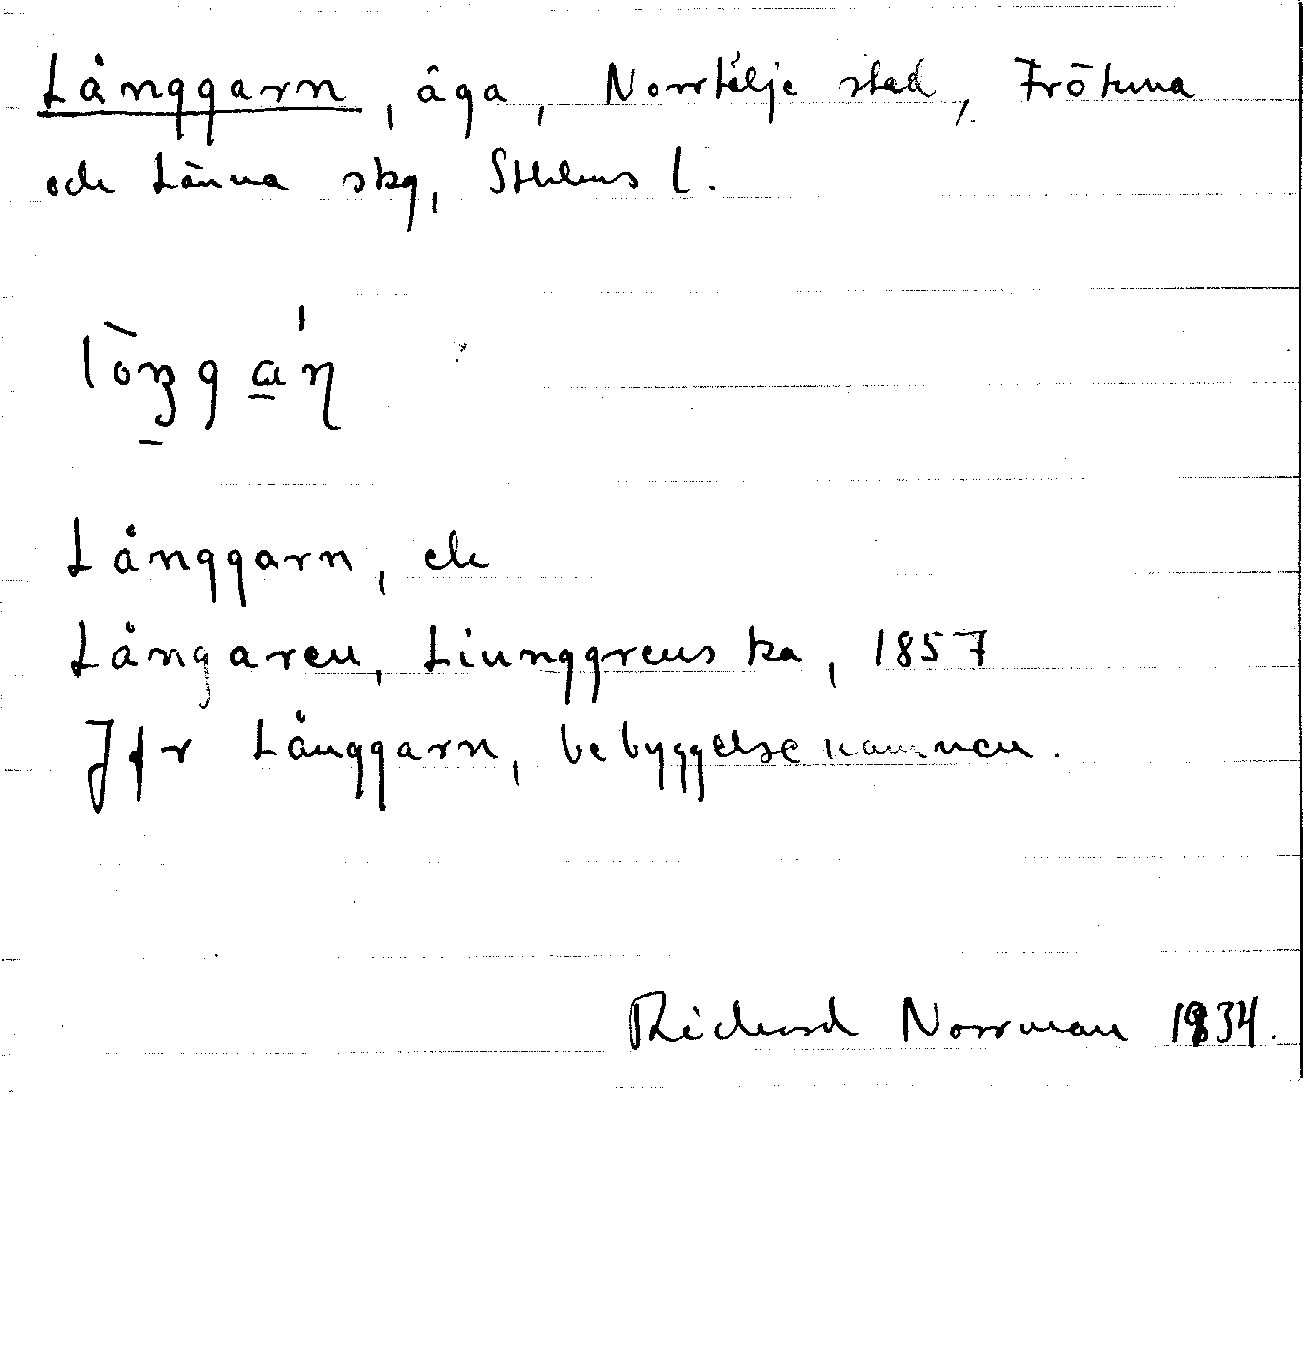 Långgarn, äga, Norrtälje stad, Frötuna
och Länna skg, Sthlms l.
Långgarn, ek
Långaren, Liunggrens ka, 1857
Jfr Långgarn, bebyggelsenamnen.
Richard Norrman 1934.